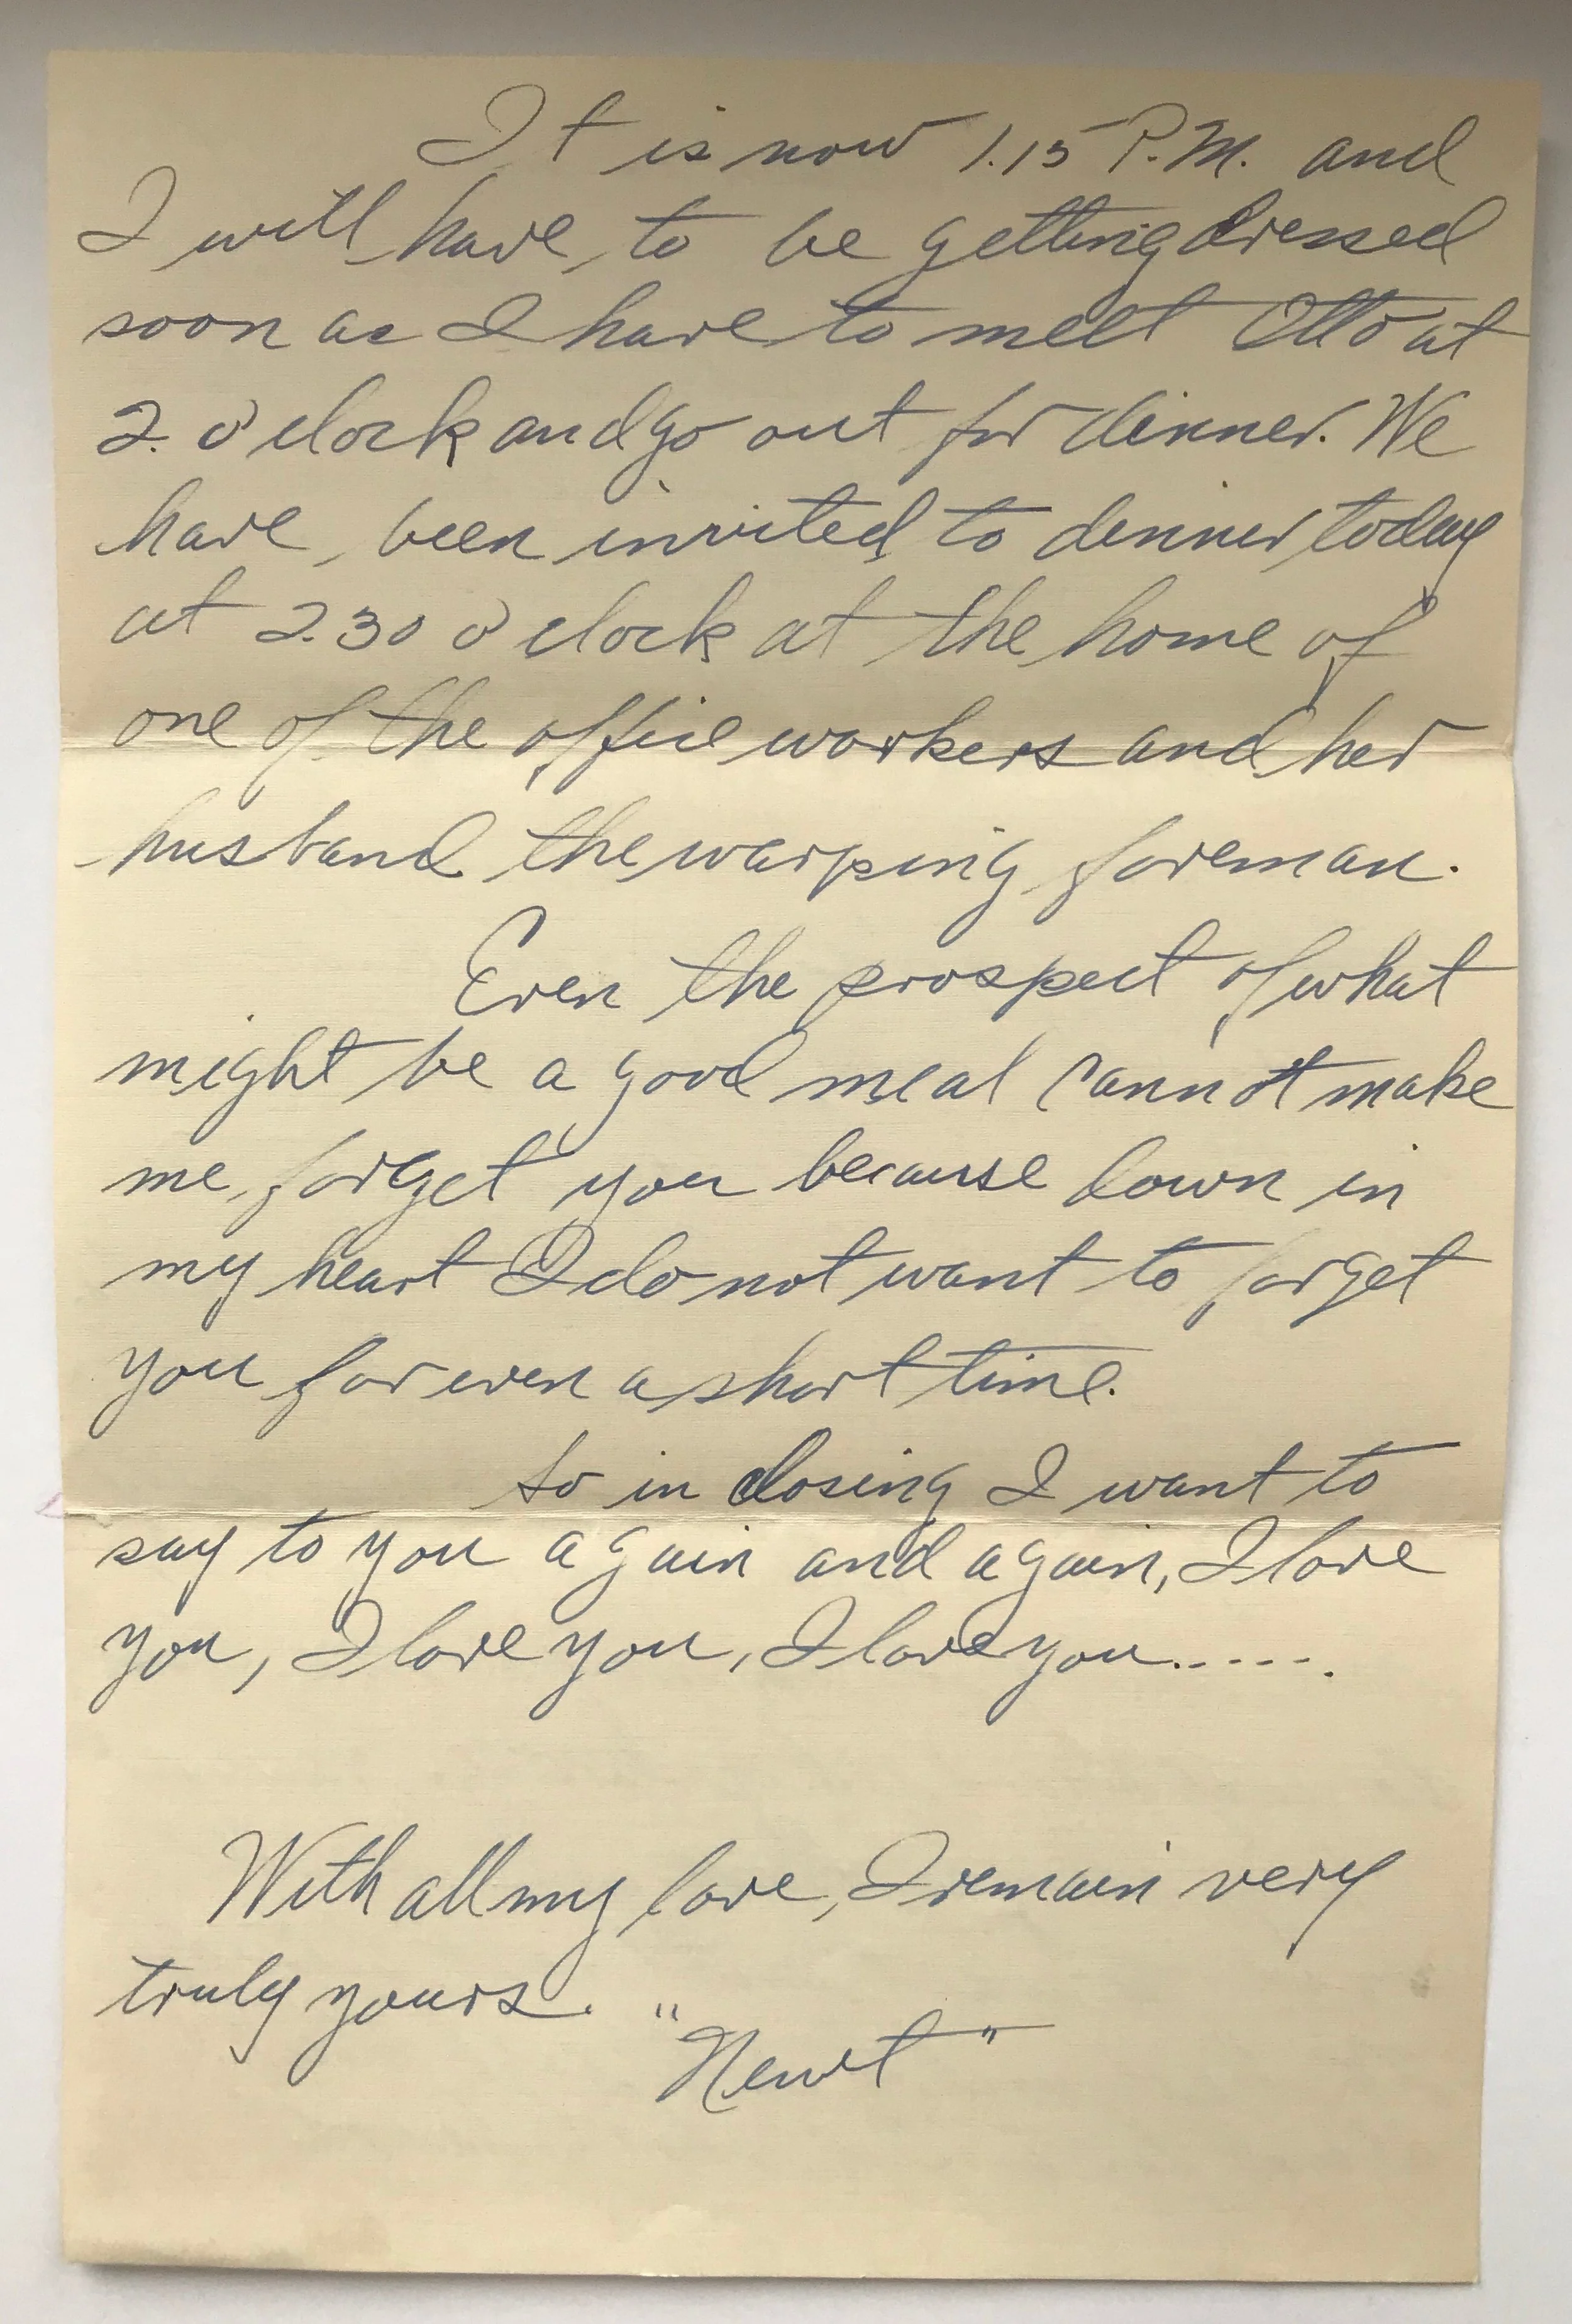 It is now 1.15 P.M. and
I will have to be getting dressed
soon as I have to meet Otto at
2. o'clock and go out for dinner. We
have been invited to dinner today
at 2.30 o'clock at the home of
one of the office workers and her
husband the warping foreman.
Even the prospect of what
might be a good meal cannot make
me forget you because down in
my heart I do not want to forget
you for even a short time.
So in closing I want to
say to you again and again, I love
you, I love you, I love you......
With all my love, I remain very
truly yours.
"Newt"